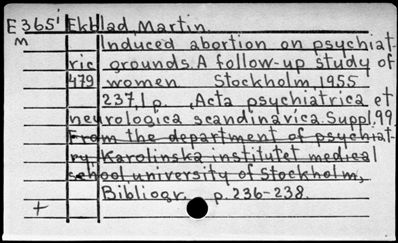 E365' Ekblad, Martin.
m Induced abortion on psychiat-
ric grounds. A follow-up study of
479 women. Stockholm 1955
237,1 p. ,Acta psychiatrica et
neurologica scandinavica. Suppl. 99.
From the department of psychiat-
ry, Karolinska institutet medical
school university of Stockholm,
Bibliogr. p. 236-238.
+